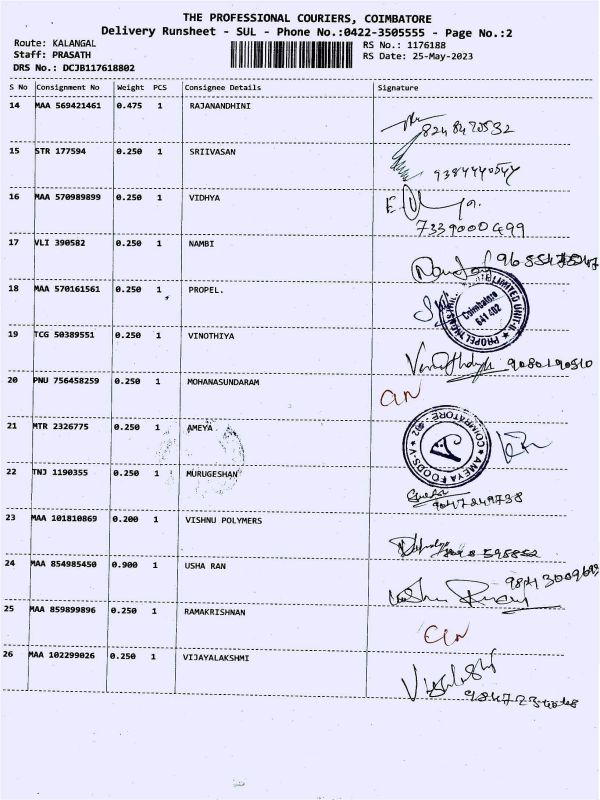 THE PROFESSIONAL COURIERS, COIMBATORE
Delivery Runsheet - SUL - Phone No.:0422-3505555 - Page No.:2
Route: KALANGAL RS No.: 1176188
Staff: PRASATH RS Date: 25-May-2023
DRS No.: DCJB117618802
S No Consignment No Weight PCS Consignee Details Signature
14 MAA 569421461 0.475 1 RAJANANDHINI
8248470532
15 STR 177594 0.250 1 SRIIVASAN
9384440544
16 MAA 570989899 0.250 1 VIDHYA
7339000499
17 VLI 390582 0.250 1 NAMBI
18 MAA 570161561 0.250 1 PROPEL.
Coimbatore
641 402
19 TCG 50389551 0.250 1 VINOTHIYA
9080190510
20 PNU 756458259 0.250 1 MOHANASUNDARAM
21 MTR 2326775 0.250 1 AMEYA
AMEYA FOODS-V COIMBATORE
22 TNJ 1190355 0.250 1 MURUGESHAN
9047249738
23 MAA 101810869 0.200 1 VISHNU POLYMERS
24 MAA 854985450 0.900 1 USHA RAN
25 MAA 859899896 0.250 1 RAMAKRISHNAN
26 MAA 102299026 0.250 1 VIJAYALAKSHMI